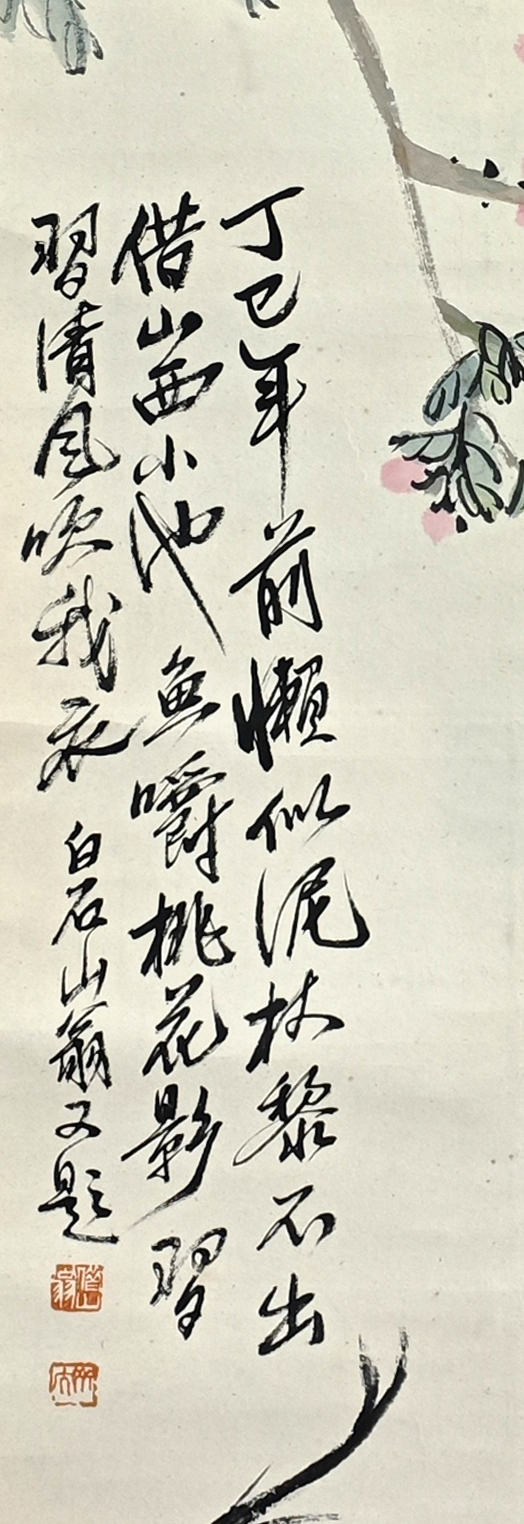 丁巳年前懶似泥杖黎不出
借山西小池魚嚼桃花影習
習清風吹我衣
白石山翁又題